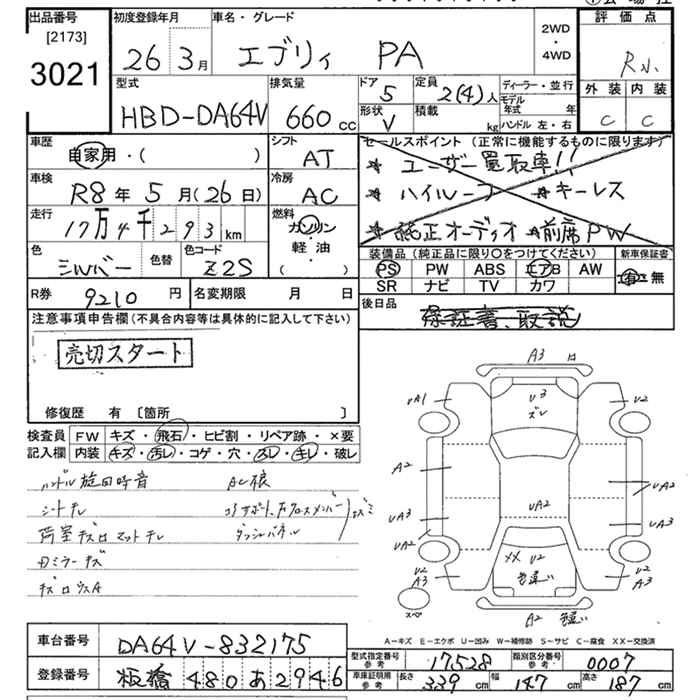 出品番号 初度登録年月 車名・グレード 評価点
[2173]
3021
26 3月 エブリィ PA
2WD
・
4WD
R小
型式 排気量 ドア 定員 ディーラー・並行
HBD-DA64V 660cc 5 2(4)人
形状 積載 モデル年式 年
V kg ハンドル 左・右
外装 内装
C C
車歴 シフト セールスポイント(正常に機能するものに限ります)
自家用・( ) AT
ユーザー買取車!!
車検 冷房
R8年5月(26日) AC
キーレス
走行 燃料
17万4千293km
ガソリン
軽・油
・
( )
純正オーディオ 前席PW
色 色替 色コード
シルバー Z2S
装備品(純正品に限り○をつけてください) 新車保証書
PS PW ABS エアB AW
SR ナビ TV カワ
有・無
R券 9210円 名変期限 月 日
後日品 保証書、取説
注意事項申告欄(不具合内容等は具体的に記入して下さい)
売切スタート
修復歴 有 [箇所 ]
検査員 FW キズ・飛石・ヒビ割・リペア跡・×要
記入欄 内装 キズ・汚レ・コゲ・穴・スレ・キレ・破レ
シートキレ
Rミラーキズ
A3
UA1
U3
ズレ
U2
A2
UA2
UA2
UA3
UA3
UA2
XX U2
色違い
U2
A3
U2
A3
スペア
A2 色違い
A-キズ E-エクボ U-凹み W-補修跡 S-サビ C-腐食 XX-交換済
車台番号 DA64V-832175
型式指定番号 参考 17528 類別区分番号 参考 0007
登録番号 板橋 480 あ 2946
車庫証明用 参考 長さ 339cm 幅 147cm 高さ 187cm